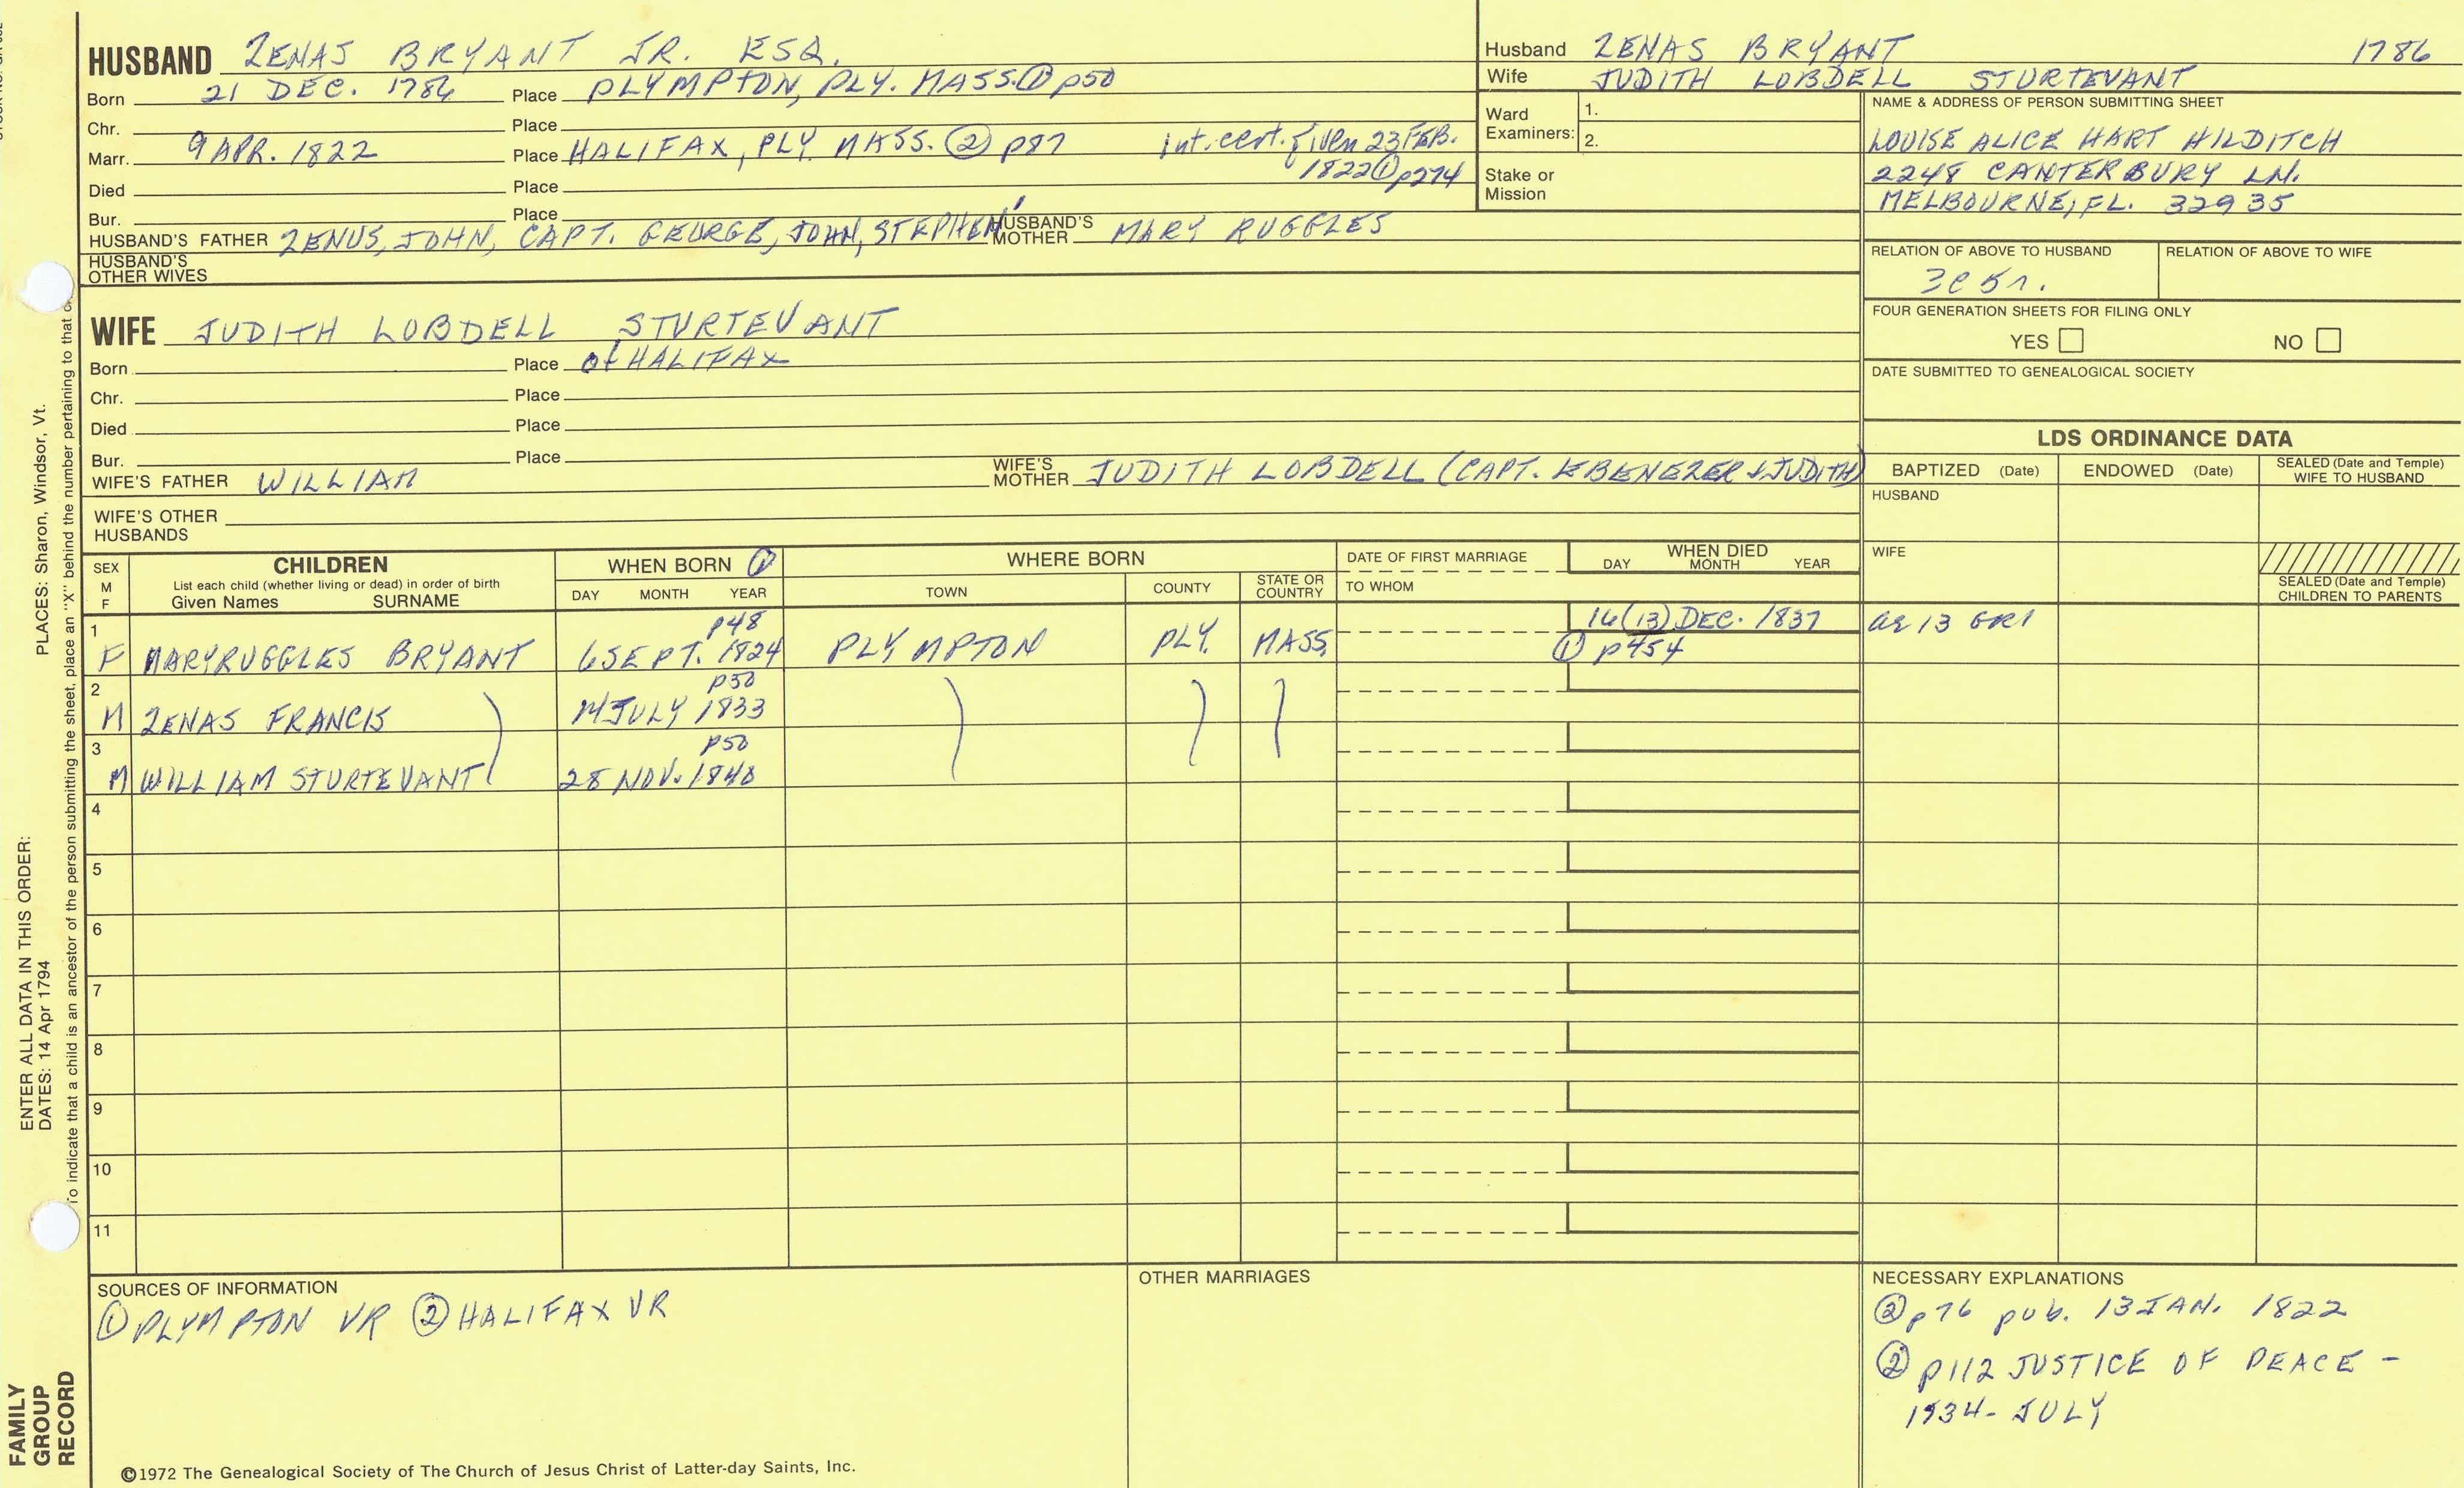 HUSBAND ZENAS BRYANT JR. ESQ.
Born 21 DEC. 1786 Place PLYMPTON, PLY. MASS. ① p50
Chr. Place
Marr. 9 APR. 1822 Place HALIFAX, PLY. MASS. ② p87 Int. cert. given 23 FEB.
1822 ① p274
Died Place
Bur. Place
HUSBAND'S FATHER ZENUS, JOHN, CAPT. GEORGE, JOHN, STEPHEN' HUSBAND'S MOTHER MARY RUGGLES
HUSBAND'S OTHER WIVES
Husband ZENAS BRYANT 1786
Wife JUDITH LOBDELL STURTEVANT
Ward Examiners: 1.
2.
Stake or Mission
NAME & ADDRESS OF PERSON SUBMITTING SHEET
LOUISE ALICE HART HILDITCH
2248 CANTERBURY LN.
MELBOURNE, FL. 32935
RELATION OF ABOVE TO HUSBAND RELATION OF ABOVE TO WIFE
3C 5r.
FOUR GENERATION SHEETS FOR FILING ONLY
YES NO
DATE SUBMITTED TO GENEALOGICAL SOCIETY
WIFE JUDITH LOBDELL STURTEVANT
Born Place of HALIFAX
Chr. Place
Died Place
Bur. Place
WIFE'S FATHER WILLIAM WIFE'S MOTHER JUDITH LOBDELL (CAPT. EBENEZER & JUDITH)
WIFE'S OTHER HUSBANDS
LDS ORDINANCE DATA
BAPTIZED (Date) ENDOWED (Date) SEALED (Date and Temple) WIFE TO HUSBAND
HUSBAND
WIFE
SEALED (Date and Temple) CHILDREN TO PARENTS
SEX M F
CHILDREN
List each child (whether living or dead) in order of birth
Given Names SURNAME
WHEN BORN ①
DAY MONTH YEAR
WHERE BORN
TOWN COUNTY STATE OR COUNTRY
DATE OF FIRST MARRIAGE
TO WHOM
WHEN DIED
DAY MONTH YEAR
1 p48 16 (13) DEC. 1837 ae 13 GR1
F MARY RUGGLES BRYANT 6 SEPT. 1824 PLYMPTON PLY. MASS. ① p454
2 p50
M ZENAS FRANCIS 14 JULY 1833
3 p50
M WILLIAM STURTEVANT 28 NOV. 1840
4
5
6
7
8
9
10
11
SOURCES OF INFORMATION
① PLYMPTON VR ② HALIFAX VR
OTHER MARRIAGES
NECESSARY EXPLANATIONS
② p76 pub. 13 JAN. 1822
② p112 JUSTICE OF PEACE -
1834 - JULY
©1972 The Genealogical Society of The Church of Jesus Christ of Latter-day Saints, Inc.
FAMILY GROUP RECORD
ENTER ALL DATA IN THIS ORDER:
DATES: 14 Apr 1794
PLACES: Sharon, Windsor, Vt.
To indicate that a child is an ancestor of the person submitting the sheet, place an "X" behind the number pertaining to that